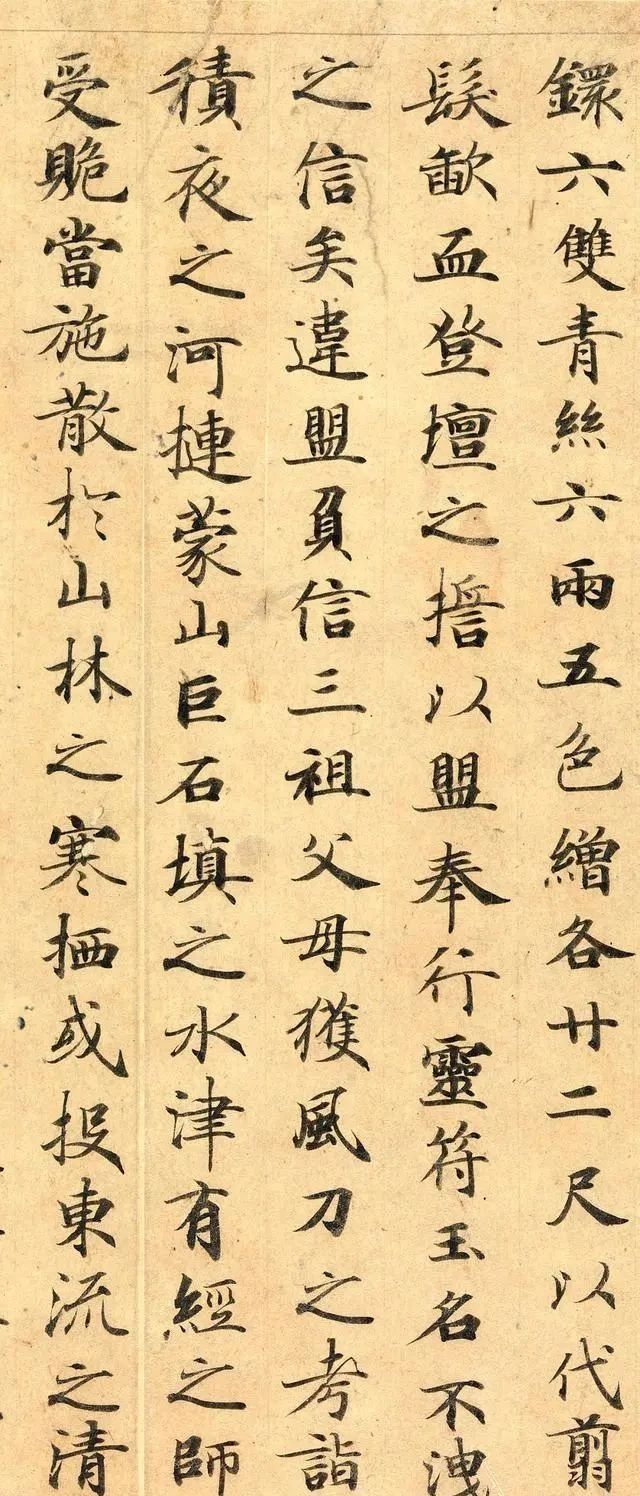 鐶六雙青絲六兩五色繒各廿二尺以代翦
髮歃血登壇之擔以盟奉行靈符玉名不洩
之信矣違盟負信三祖父母獲風刀之考詣
積夜之河摙蒙山巨石填之水津有經之師
受䞈當施散於山林之寒栖或投東流之清